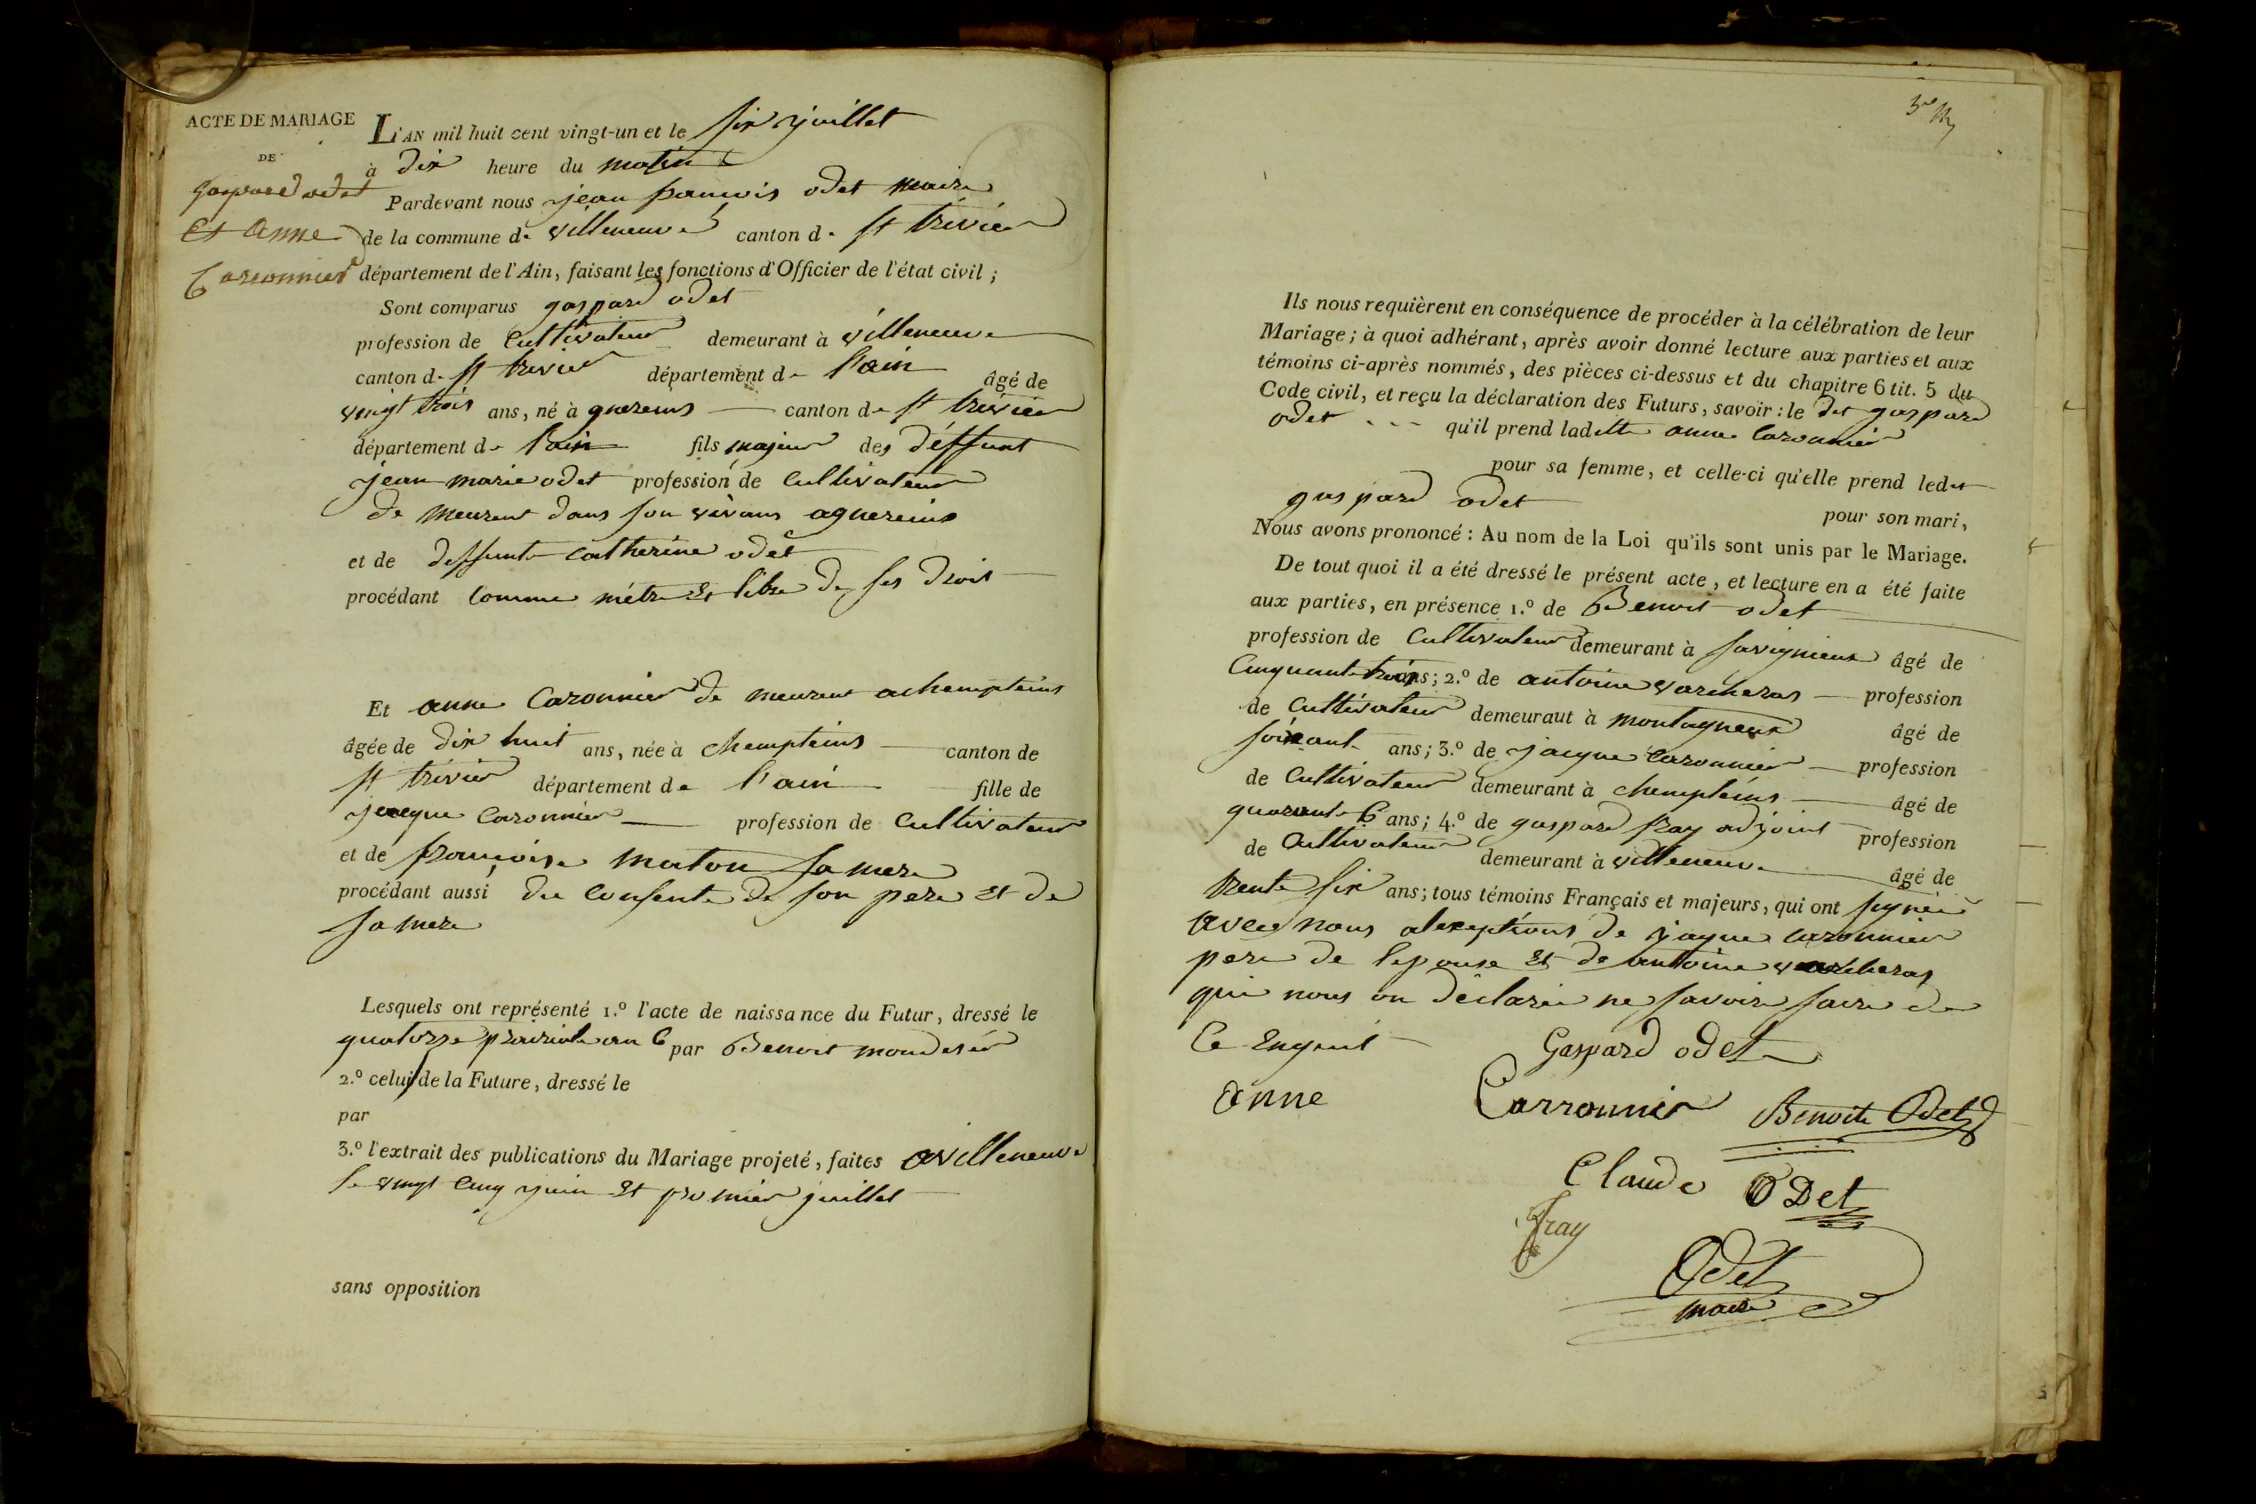 ACTE DE MARIAGE
DE
gaspard odet
Et anne
Caronnier
L'AN mil huit cent vingt-un et le six juillet
à dix heure du matin
Pardevant nous jean francois odet maire
de la commune de villeneuve canton de st trivier
département de l'Ain, faisant les fonctions d'Officier de l'état civil;
Sont comparus gaspard odet
profession de Cultivateur demeurant à villeneuve
canton de st trivier département de l'ain âgé de
vingt trois ans, né à guereins canton de st trivier
département de l'ain fils majeur des déffunt
jean marie odet profession de Cultivateur
de meurent dans son vivans aguereins
et de deffunte catherine odet
procédant comme métre Et libre de ses droit
Et anne Caronnier de meurent achempteins
âgée de dix huit ans, née à chempteins canton de
st trivier département de l'ain fille de
jacque Caronnier profession de Cultivateur
et de francoise maton sa mere
procédant aussi du consente de son pere Et de
sa mere
Lesquels ont représenté 1.º l'acte de naissance du Futur, dressé le
quatorze prairiale an 6 par Benoit
2.º celui de la Future, dressé le
par
3.º l'extrait des publications du Mariage projeté, faites avilleneuve
le vingt cinq juin Et promier juillet
sans opposition
Ils nous requièrent en conséquence de procéder à la célébration de leur
Mariage; à quoi adhérant, après avoir donné lecture aux parties et aux
témoins ci-après nommés, des pièces ci-dessus et du chapitre 6 tit. 5 du
Code civil, et reçu la déclaration des Futurs, savoir: le det gaspard
odet qu'il prend ladette anne Caronnier
pour sa femme, et celle-ci qu'elle prend ledet
gaspard odet pour son mari,
Nous avons prononcé: Au nom de la Loi qu'ils sont unis par le Mariage.
De tout quoi il a été dressé le présent acte, et lecture en a été faite
aux parties, en présence 1.º de Benoit odet
profession de Cultivateur demeurant à savignieux âgé de
Cinquante trois ans; 2.º de antoine varcheras profession
de Cultivateur demeuraut à montagneux âgé de
soixant ans; 3.º de jacque Caronnier profession
de Cultivateur demeurant à chempteins âgé de
quarante 6 ans; 4.º de gaspard fray adjoint profession
de Cultivateur demeurant à villeneuve âgé de
trente six ans; tous témoins Français et majeurs, qui ont
avec nous alexeptions de jaque caronnier
pere de lepouse Et de antoine varcheras
qui nous on déclarée ne savoire faire de
Ce Enquit
Gaspard odet
anne Carronnier Benoit Odet
Claude ODet
fray
Odet
maire